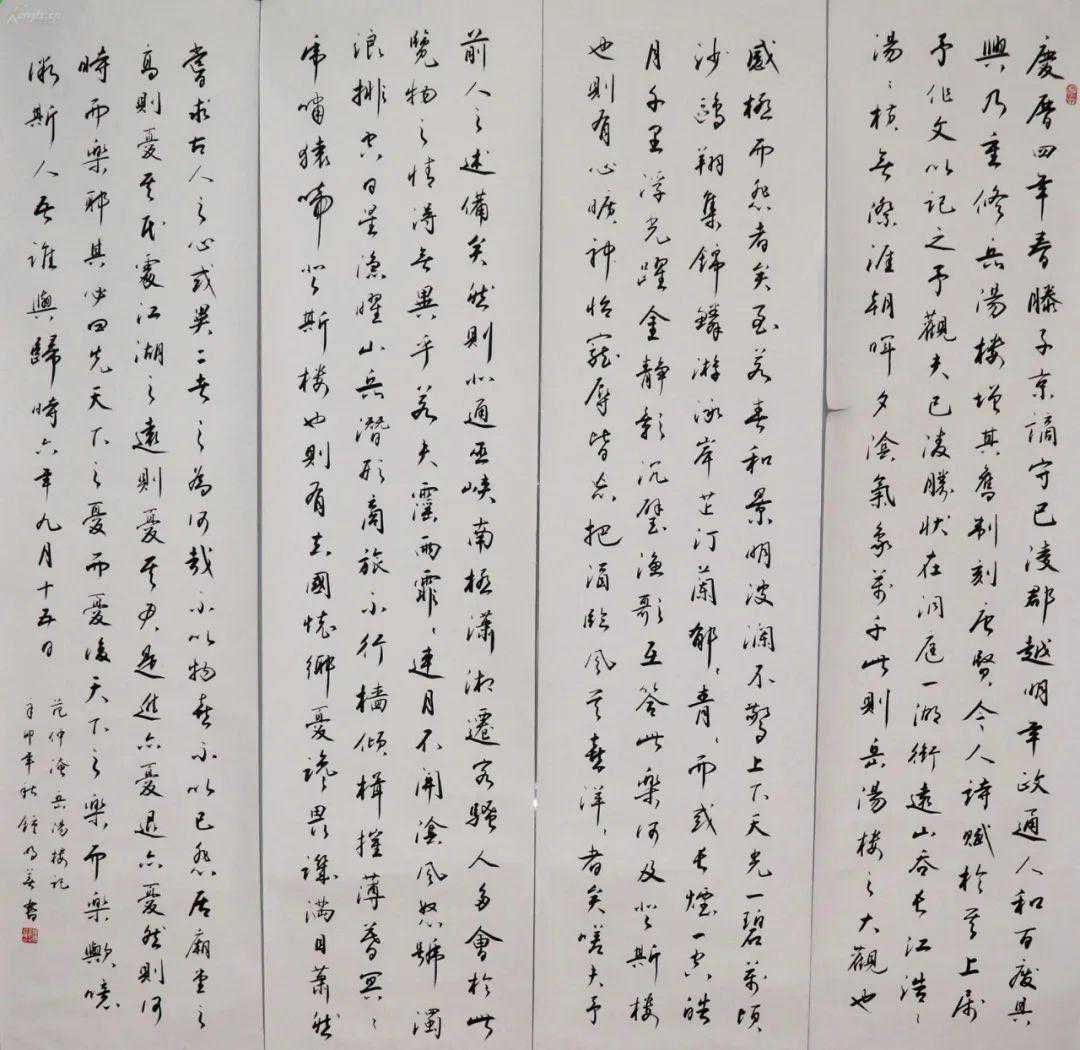 慶曆四年春滕子京謫守巴陵郡越明年政通人和百廢具
興乃重修岳陽樓增其舊制刻唐賢今人詩賦於其上屬
予作文以記之予觀夫巴陵勝狀在洞庭一湖銜遠山吞長江浩々
湯々橫無際涯朝暉夕陰氣象萬千此則岳陽樓之大觀也
感極而悲者矣至若春和景明波瀾不驚上下天光一碧萬頃
沙鷗翔集錦鱗游泳岸芷汀蘭郁々青々而或長煙一空皓
月千里浮光躍金靜影沉璧漁歌互答此樂何极登斯樓
也則有心曠神怡寵辱皆忘把酒臨風其喜洋々者矣嗟夫予
前人之述備矣然則北通巫峽南極瀟湘遷客騷人多會於此
覽物之情得無異乎若夫霪雨霏々連月不開陰風怒號濁
浪排空日星隱曜山岳潛形商旅不行檣傾楫摧薄暮冥々
虎嘯猿啼登斯樓也則有去國懷鄉憂讒畏譏滿目蕭然
嘗求古人之心或異二者之為何哉不以物喜不以己悲居廟堂之
高則憂其民處江湖之遠則憂其君是進亦憂退亦憂然則何
時而樂耶其必曰先天下之憂而憂後天下之樂而樂歟噫
微斯人吾誰與歸時六年九月十五日
范仲淹岳陽樓記
年秋鍾明善書